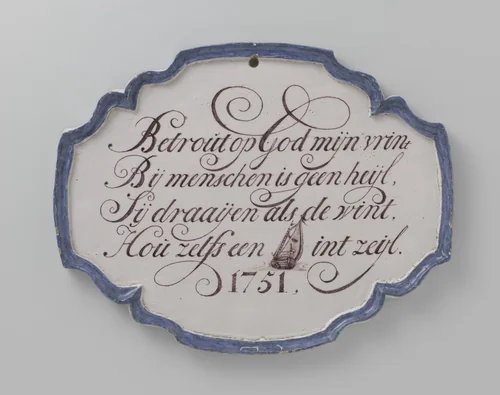 Betrout op God mijn vrint
Bij menschen is geen heijl,
Sij draaijen als de vint.
Hou zelfs een int zeijl.
1751.